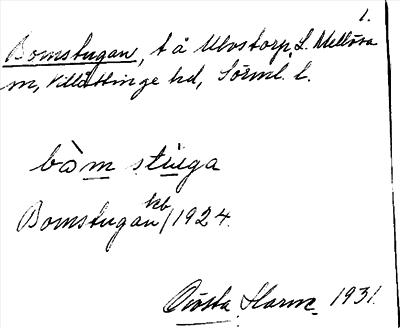 1.
Bomstugan, t å Ulvstorp, L. Mellösa
m, Villåttinge hd, Sörml. l.
bo᷆m stuga
Bomstugan kb/1924.
Gösta Harme. 1931.